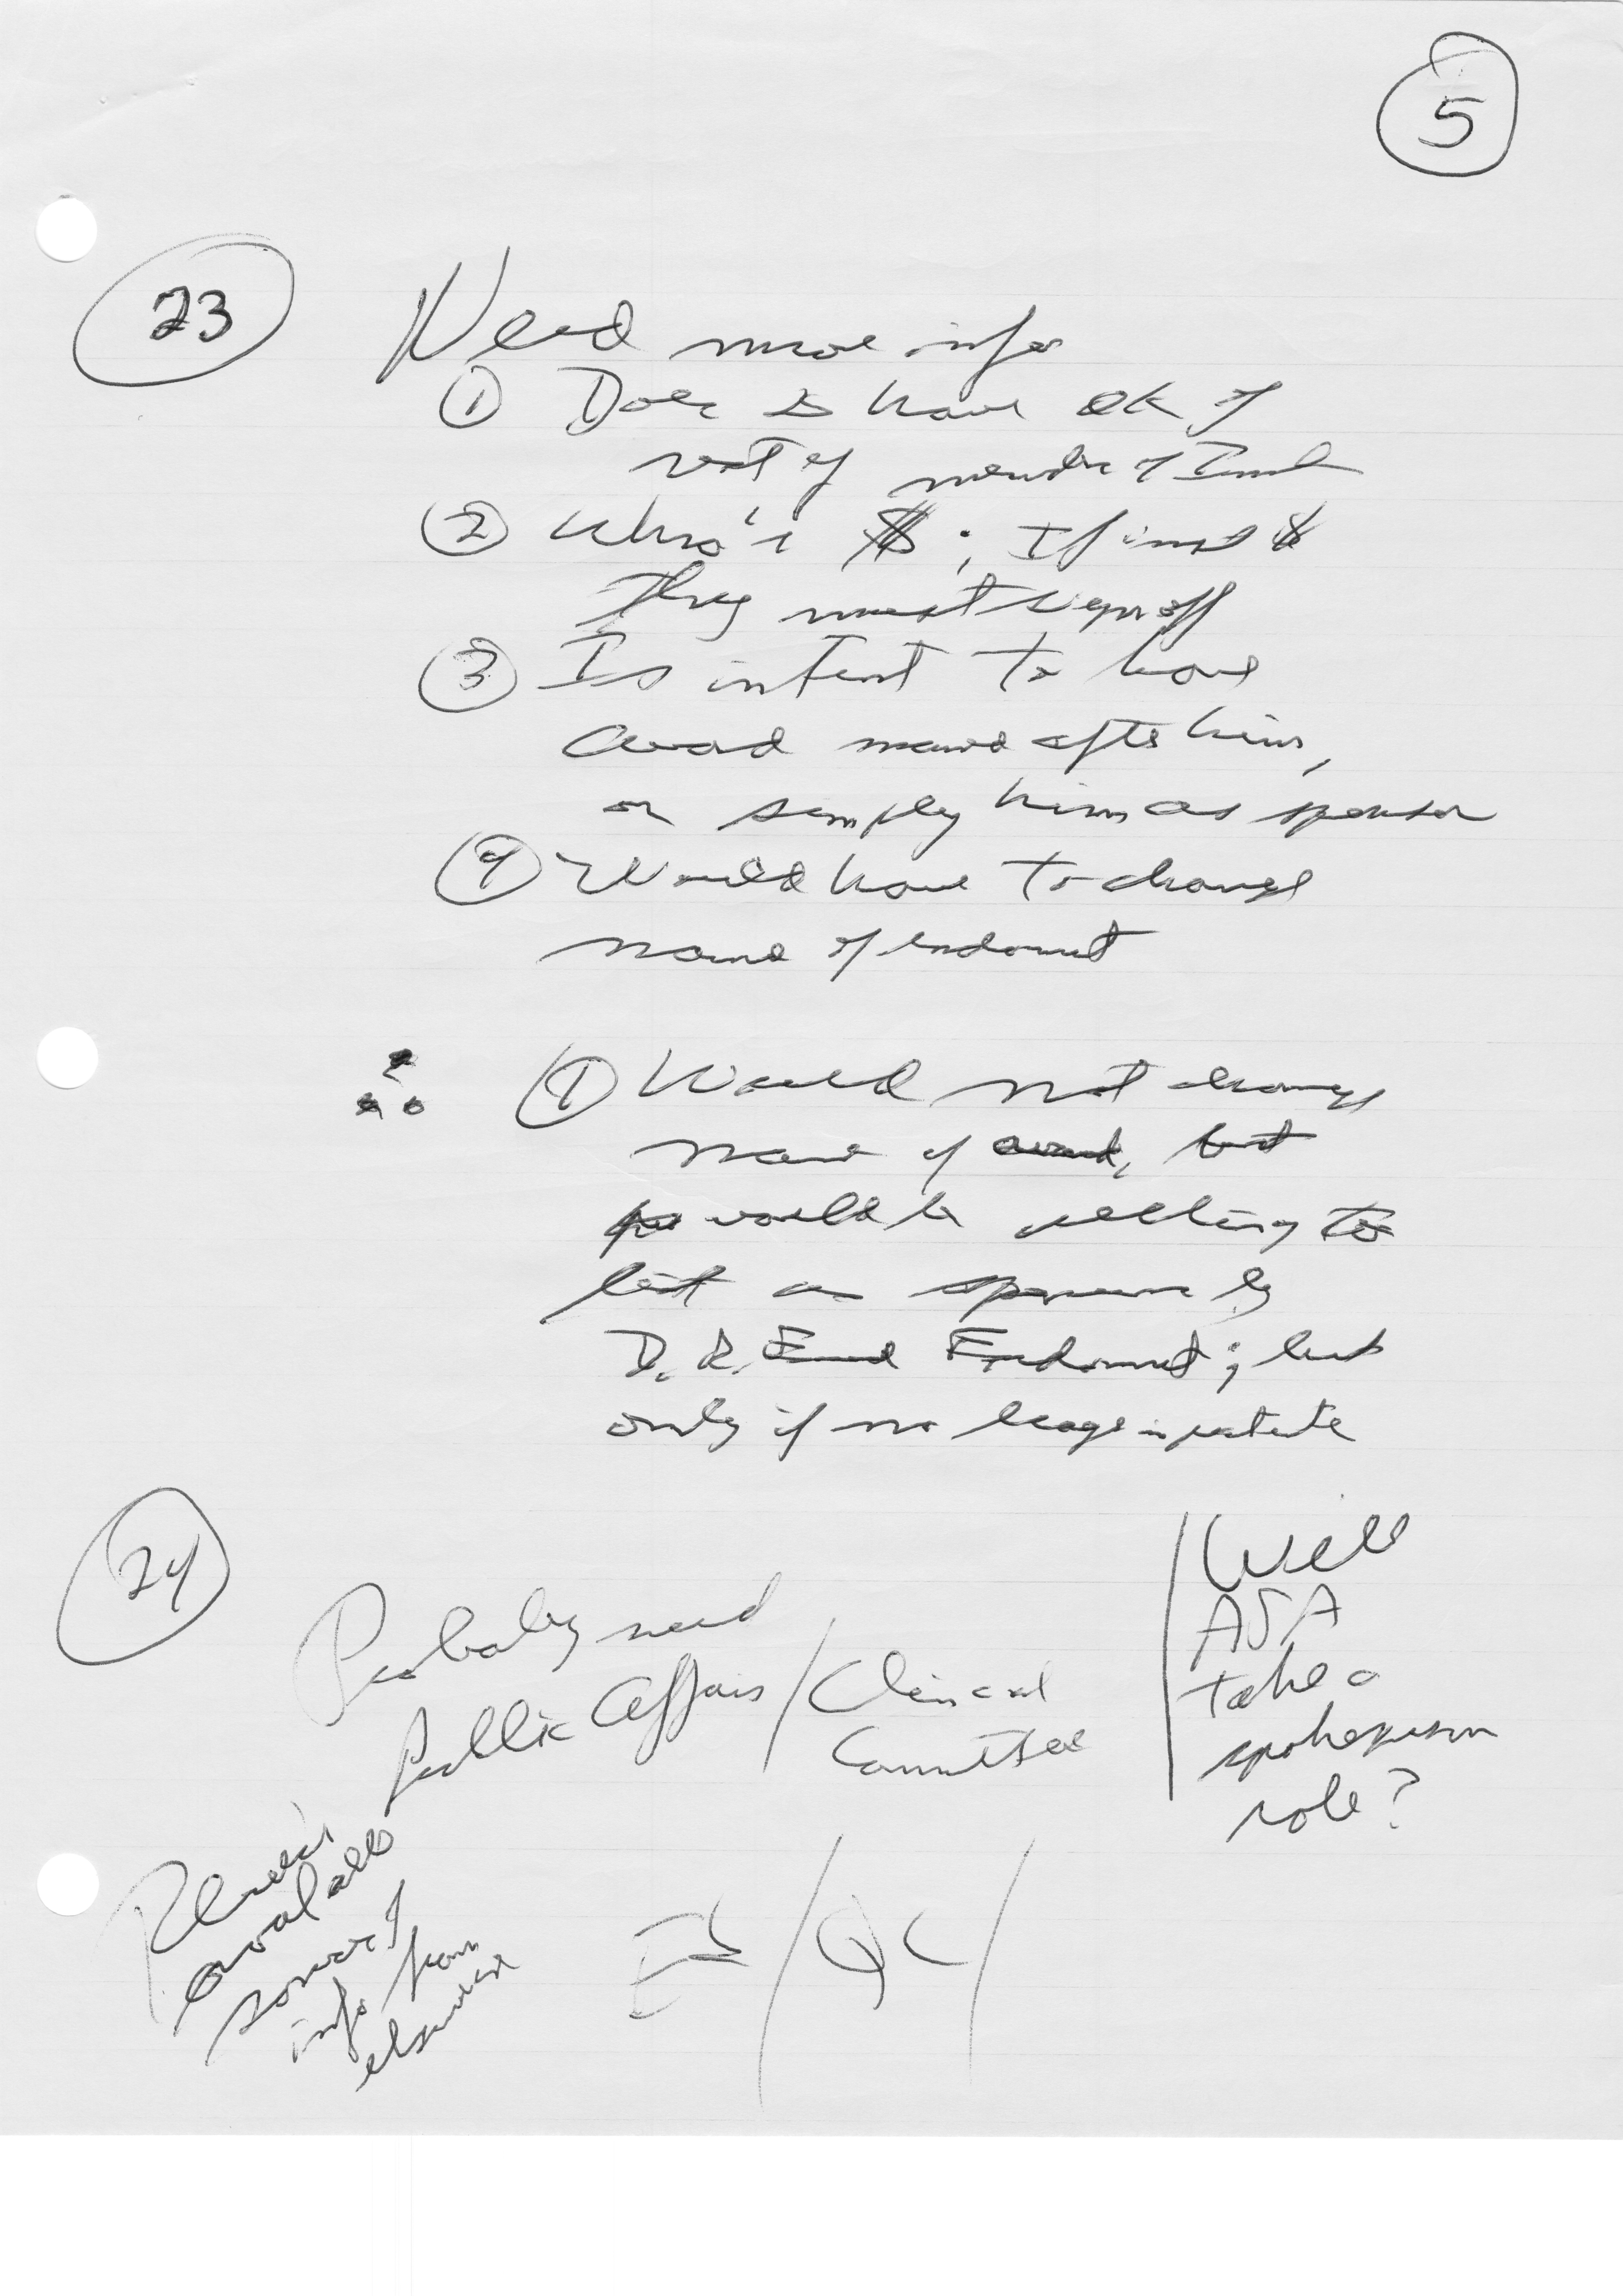 5
23 Need more info
① Does have OK of
rest of of
② Who's $; If $
They must sign off
③ Is intent to have
award named after him,
or simply him as sponsor
④ Would have to change
name of endowment
∴ ① Would not change
name of award, but
would be willing to
list as by
D. R. Endowment; but
only if no
24
Probably need
Public Affairs / Clinical
Committee
Will
ASA
take a
spokesperson
role?
Review
available
source of
info from
elsewhere
/ QC /